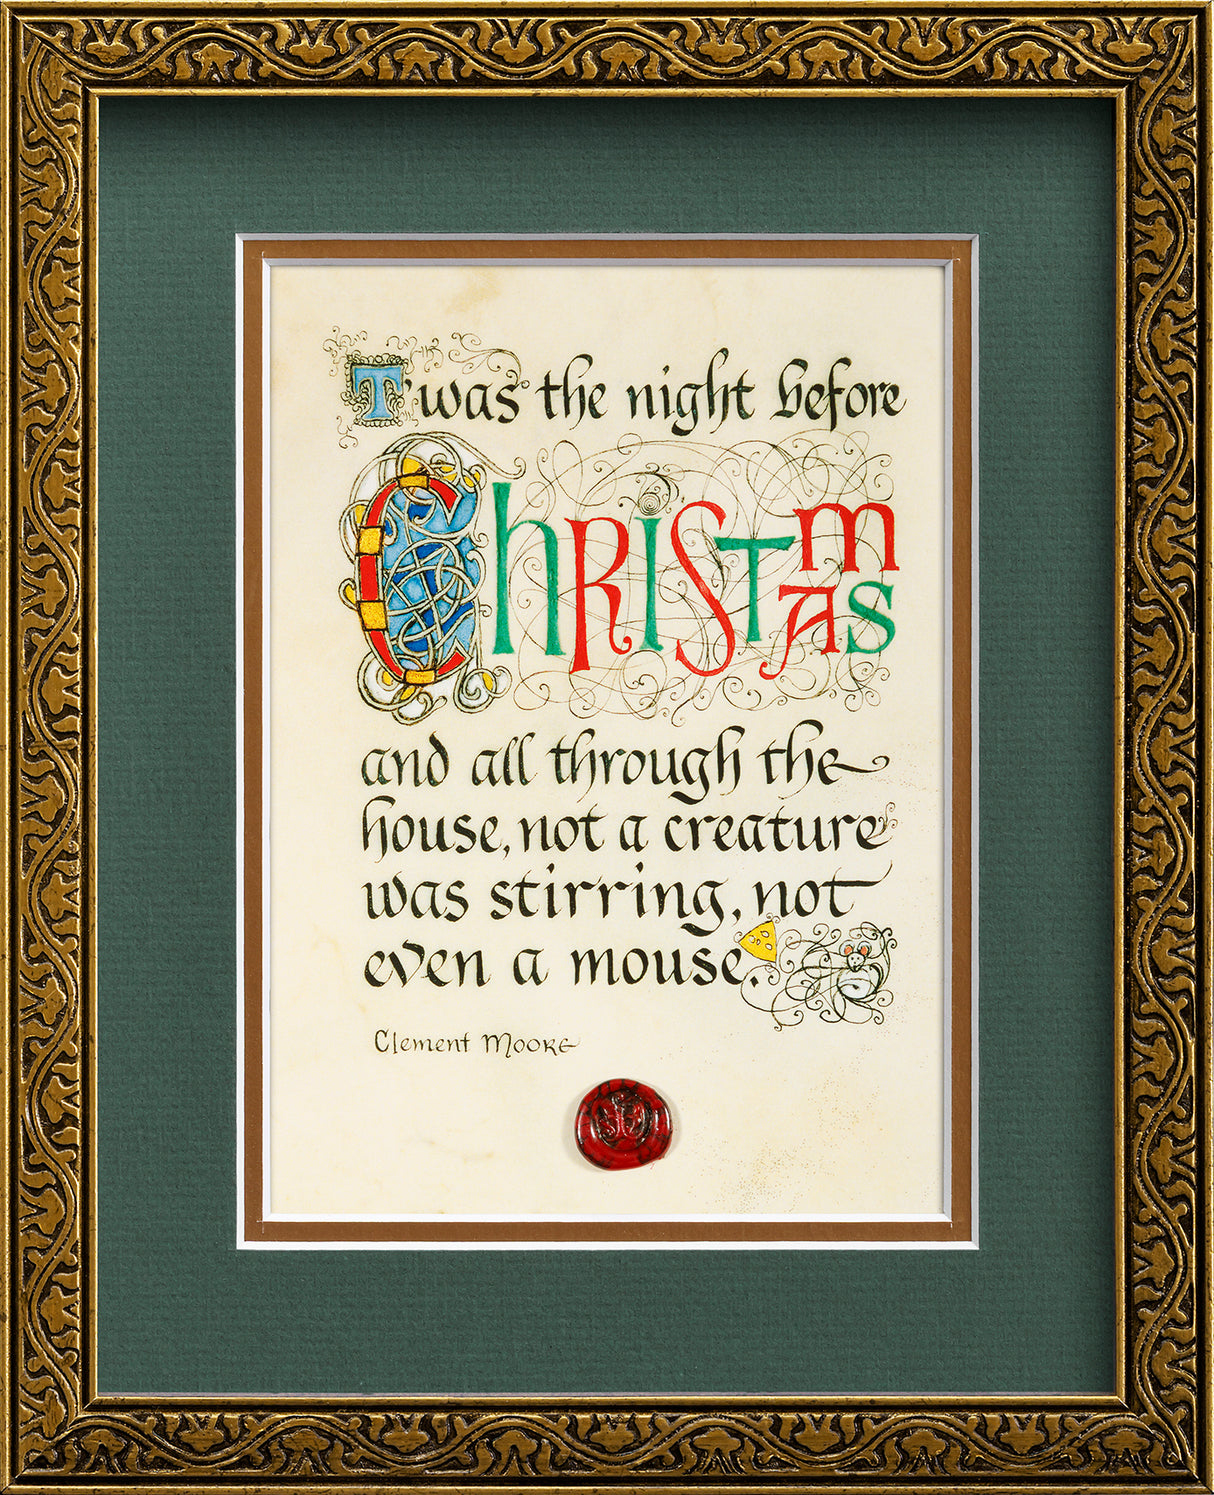 T'was the night before
ChRiSTmAS
and all through the
house, not a creature
was stirring, not
even a mouse.
Clement Moore